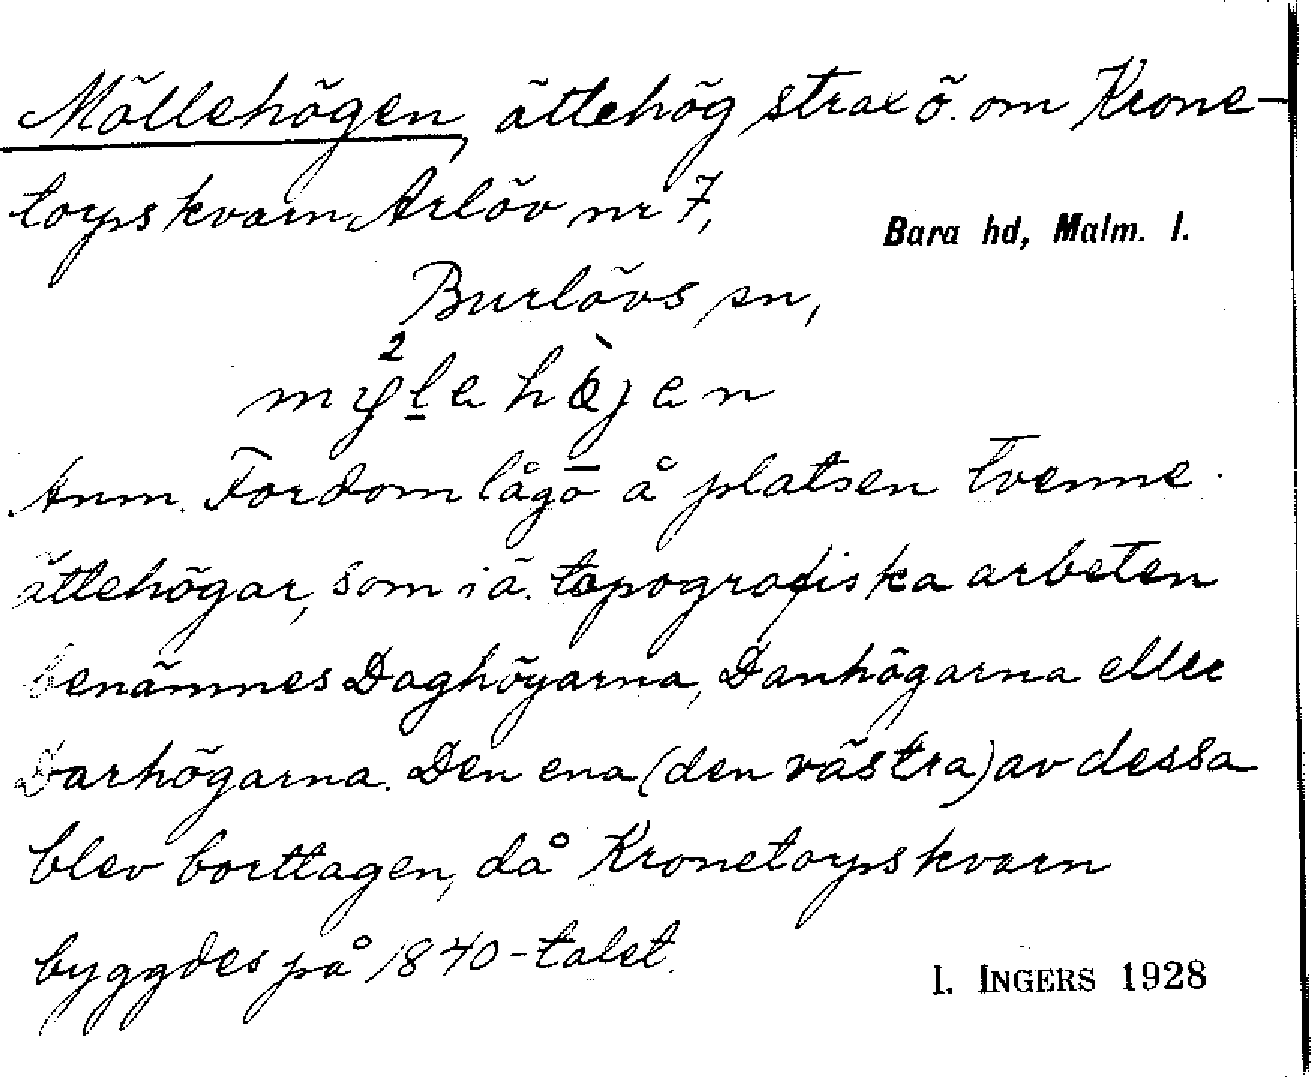 Möllehögen, ättehög strax ö. om Krone-
torps kvarn, Arlöv nr 7,
Bara hd, Malm. l.
Burlövs sn,
Anm. Fordom lågo å platsen tvenne
ättehögar, som i ä. topografiska arbeten
benämnes Daghögarna, Danhögarna eller
Darhögarna. Den ena (den västra) av dessa
blev borttagen, då Kronetorps kvarn
byggdes på 1840-talet.
I. INGERS 1928